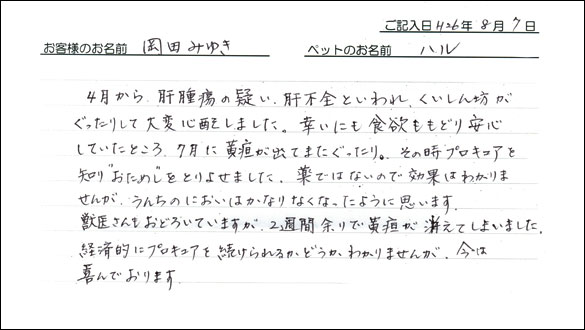 ご記入日 H26年 8月 7日
お客様のお名前 岡田みゆき ペットのお名前 ハル
4月から、肝腫瘍の疑い、肝不全といわれ、くいしん坊が
ぐったりして大変心配しました。幸いにも食欲ももどり安心
していたところ、7月に黄疸が出てまたぐったり。その時プロキュアを
知り"おためし"をとりよせました。薬ではないので効果はわかりま
せんが、うんちのにおいはかなりなくなったように思います。
獣医さんもおどろいていますが、2週間余りで黄疸が消えてしまいました。
経済的にプロキュアを続けられるかどうかわかりませんが、今は
喜んでおります。